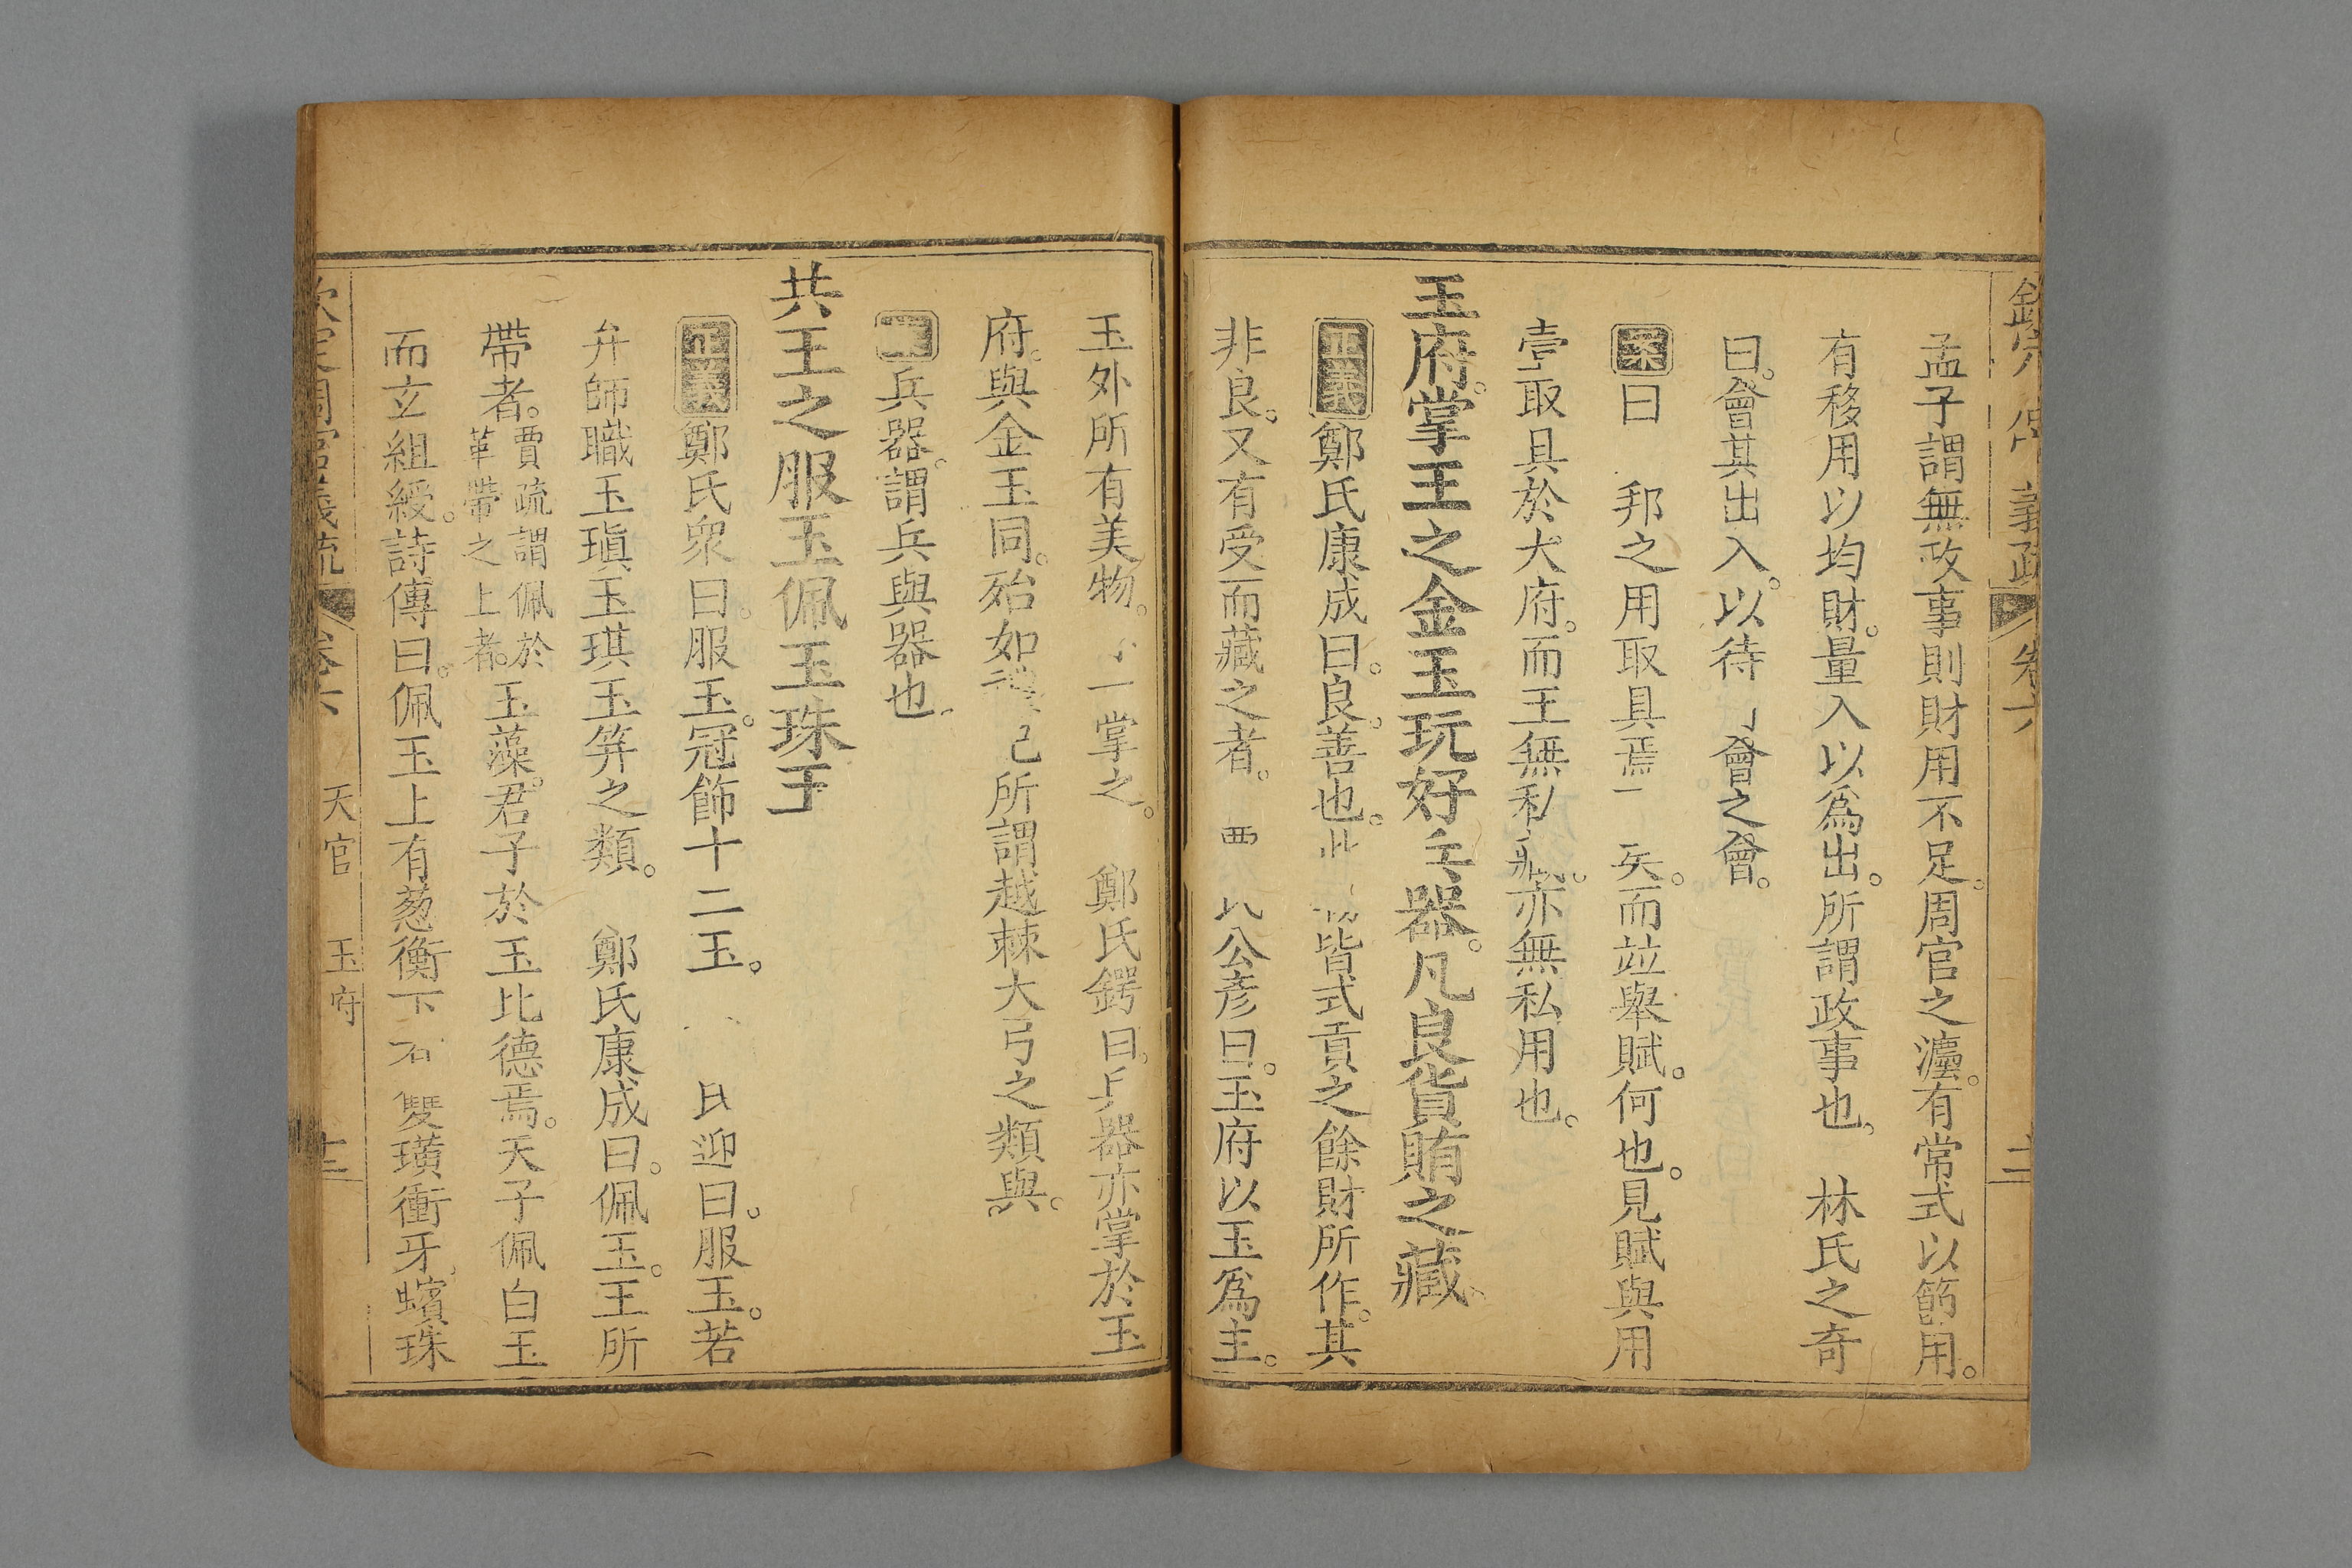 孟子謂無政事則財用不足。周官之灋。有常式以節用。
有移用以均財。量入以爲出。所謂政事也。林氏之奇
曰。會其出入。以待會之會。
案曰邦之用取具焉矣。而竝舉賦。何也。見賦與用
壹取具於大府。而王無私亦無私用也。
玉府。掌王之金玉玩好器。凡良貨賄之藏。
正義鄭氏康成曰。良。善也。此皆式貢之餘財所作。其
非良。又有受而藏之者。公彦曰。玉府以玉爲主。
玉外所有美物。一掌之。鄭氏鍔曰。兵器亦掌於玉
府。與金玉同。殆如記所謂越棘大弓之類與。
兵器。謂兵與器也
共王之服玉佩玉珠玉
正義鄭氏衆曰。服玉。冠飾十二玉。氏迎曰。服玉。若
弁師職玉瑱玉琪玉笄之類。鄭氏康成曰。佩玉。王所
帶者。賈疏謂佩於革帶之上者。玉藻。君子於玉比德焉。天子佩白玉
而玄組綬。詩傳曰。佩玉上有葱衡下雙璜衝牙蠙珠
卷六 天官 玉府 十三